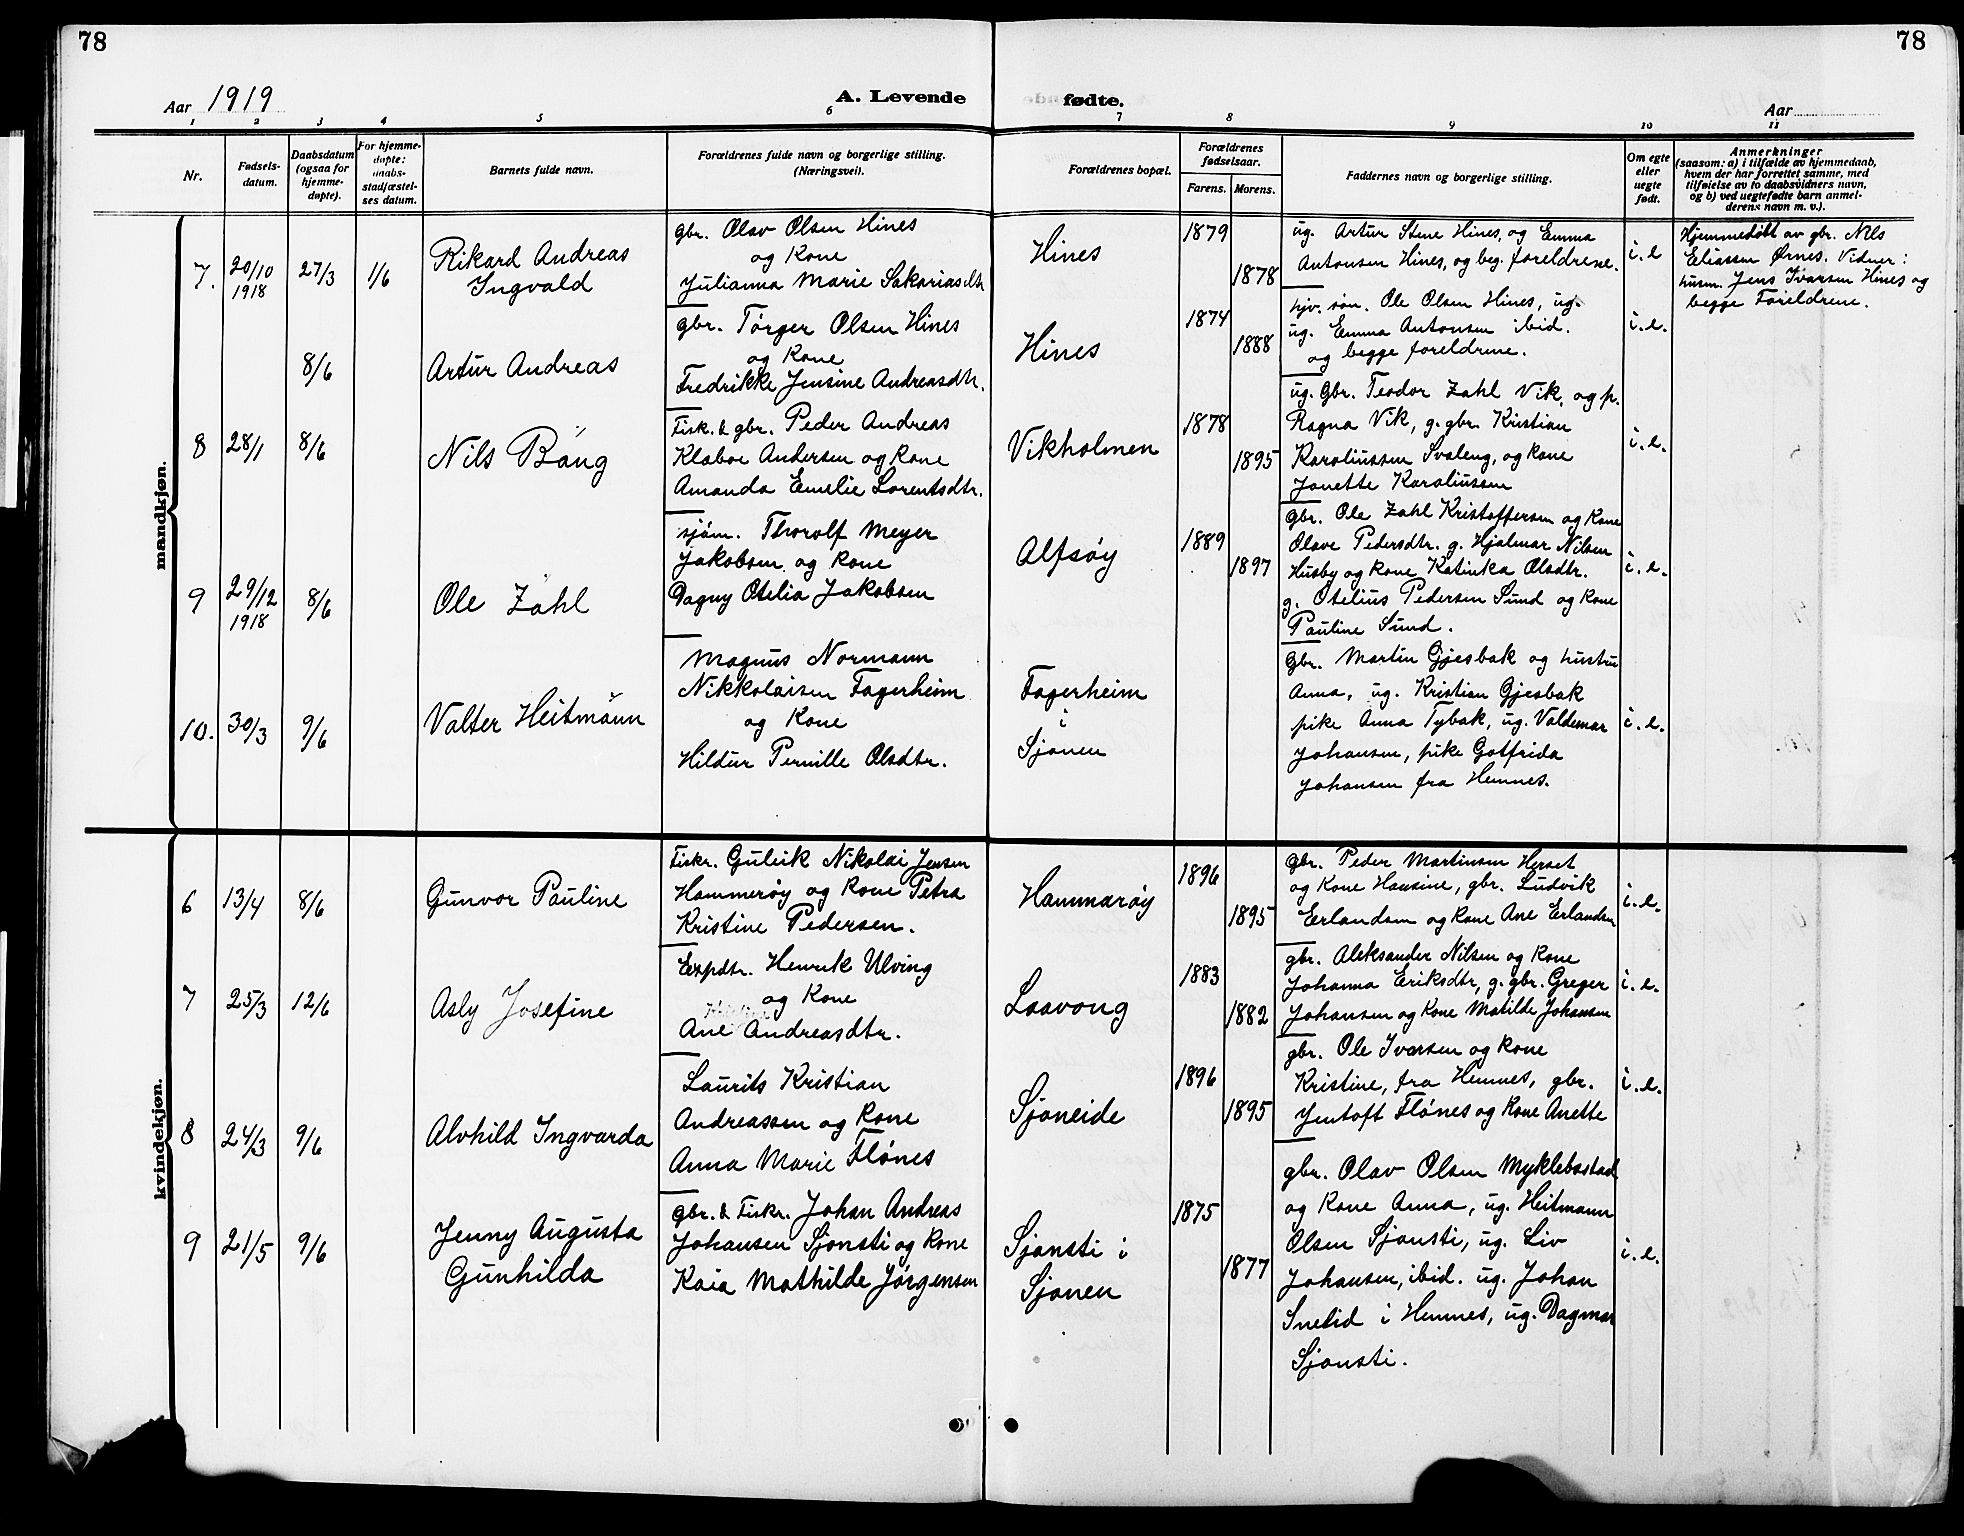 78
78
Aar 1919
A. Levende
fødte.
Aar
1 2 3 4 5 6 7 8 9 10 11
Nr.
Fødsels-
datum.
Daabsdatum
(ogsaa for
hjemme-
døpte).
For hjemme-
døpte:
daabs-
stadfæstel-
ses datum.
Barnets fulde navn.
Forældrenes fulde navn og borgerlige stilling.
(Næringsvei).
Forældrenes bopæl.
Forældrenes
fødselsaar.
Farens.
Morens.
Faddernes navn og borgerlige stilling.
Om egte
eller
uegte
født.
Anmerkninger
(saasom: a) i tilfælde av hjemmedaab,
hvem der har forrettet samme, med
tilføielse av to daabsvidners navn,
og b) ved uegtefødte barn anmel-
derens navn m. v.).
mandkjøn.
7.
20/10
1918
27/3
1/6
Rikard Andreas
Ingvald
gbr. Olav Olsen Hines
og Kone
Julianna Marie Sakariasdtr
Hines
1879
1878
ug. Artur Stene Hines, og Emma
Antonsen Hines, og beg. foreldrene.
i. e
Hjemmedöbt av gbr. Nils
Eliassen Ørnes. Vidner:
husm. Jens Ivarsen Hines og
begge Foreldrene.
8/6
Artur Andreas
gbr. Törger Olsen Hines
og Kone
Fredrikke Jensine Andreasdtr.
Hines
1874
1888
hjv. søn. Ole Olsen Hines, ug.
ug. Emma Antonsen ibid.
og begge foreldrene.
i. e.
8
28/1
8/6
Nils Bäng
Fisk. & gbr. Peder Andreas
Klaboe Andersen og Kone
Amanda Emelie Lorentsdtr.
Vikholmen
1878
1895
ug. Gbr. Teodor Zahl Vik, og p.
Ragna Vik, g. gbr. Kristian
Karoliussen Svaleng, og Kone
Janette Karoliussen
i. e.
9
29/12
1918
8/6
Ole Zahl
sjöm. Thorolf Meyer
Jakobsen og Kone
Dagny Otelia Jakobsen
Alfsøy
1889
1897
Gbr. Ole Zahl Kristoffersen og Kone
Olave Pedersdtr. g. Hjalmar Nilsen
Husby og Kone Katinka Olsdtr.
g. Otelius Pedersen Sund og Kone
Pauline Sund.
i. e.
10.
30/3
9/6
Valter Heitmann
Magnus Normann
Nikkolaisen Fagerheim
og Kone
Hildur Pernille Olsdtr.
Fagerheim
i
Sjonen
Gbr. Martin Gjesbak og hustru
Anna, ug. Kristian Gjesbak
pike Anna Tybak, ug. Valdemar
Johansen, pike Gotfrida
Johansen fra Hemnes.
i. e.
kvindekjøn.
6
13/4
8/6
Gunvor Pauline
Fiskr. Gulvik Nikolai Jensen
Hammerøy og Kone Petra
Kristine Pedersen.
Hammarøy
1896
1895
gbr. Peder Martinsen Herset
og Kone Hansine, gbr. Ludvik
Erlandsen og Kone Ane Erlandsen
i. e.
7
25/3
12/6
Asly Josefine
Expdtr. Henrik Ulving
og Kone
Ane Andreasdtr.
Laavong
1883
1882
gbr. Aleksander Nilsen og Kone
Johanna Eriksdtr, g. gbr. Greger
Johansen og Kone Matilde Johansen
i. e.
8
24/3
9/6
Alvhild Ingvarda
Laurits Kristian
Andreassen og Kone
Anna Marie Flönes
Sjoneide
1896
1895
gbr. Ole Ivarsen og Kone
Kristine, fra Hemnes, gbr.
Jentoft Flönes og Kone Anette
i. e.
9
21/5
9/6
Jenny Augusta
Gunhilda
Gbr. & Fiskr. Johan Andreas
Johansen Sjonsti og Kone
Kaia Mathilde Jörgensen
Sjonsti i
Sjonen
1875
1877
gbr. Olav Olsen Myklebostad
og Kone Anna, ug. Heitmann
Olsen Sjonsti, ug. Liv
Johansen, ibid. ug. Johan
Snelid i Hemnes, ug. Dagmar
Sjonsti.
i. e.